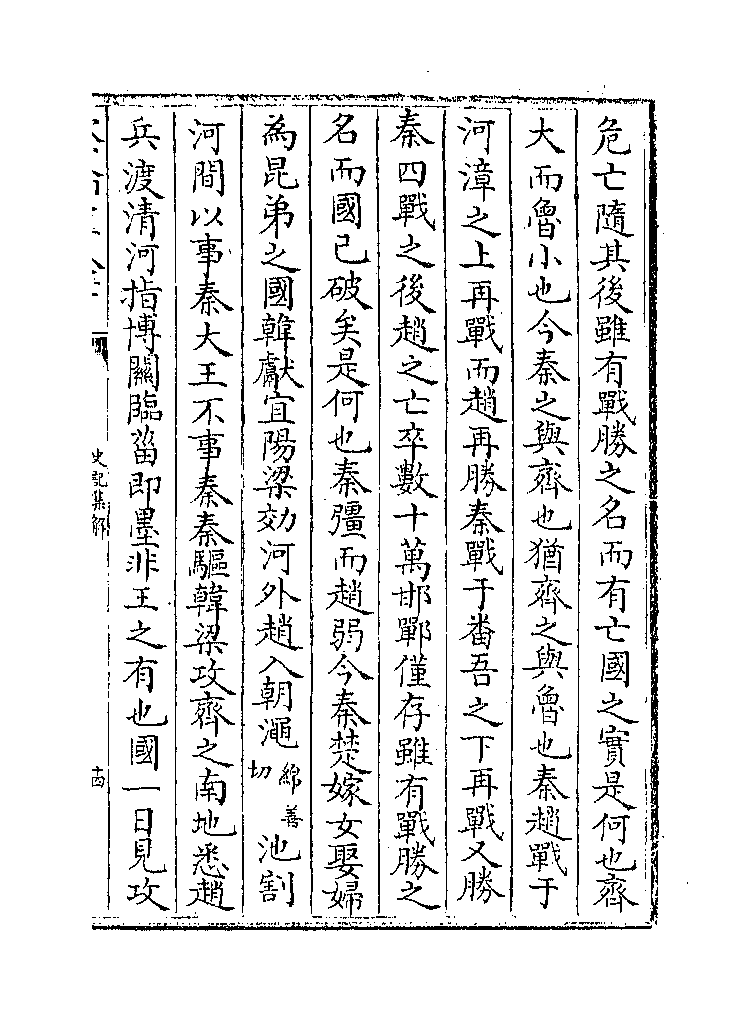 危亡隨其後雖有戰勝之名而有亡國之實是何也齊
大而魯小也今秦之與齊也猶齊之與魯也秦趙戰于
河漳之上再戰而趙再勝秦戰于番吾之下再戰又勝
秦四戰之後趙之亡卒數十萬邯鄲僅存雖有戰勝之
名而國已破矣是何也秦彊而趙弱今秦楚嫁女娶婦
為昆弟之國韓獻宜陽梁効河外趙入朝澠綿善切池割
河間以事秦大王不事秦秦驅韓梁攻齊之南地悉趙
兵渡清河指博關臨甾即墨非王之有也國一日見攻
史記集解
十四